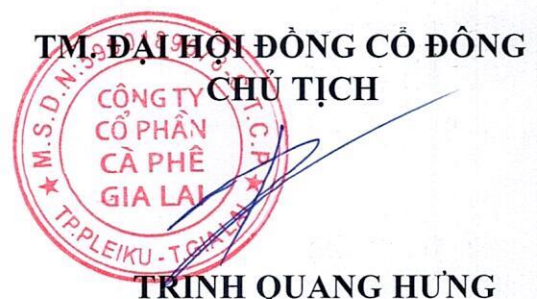 TM. ĐẠI HỘI ĐỒNG CỔ ĐÔNG
CHỦ TỊCH
CÔNG TY
CỔ PHẦN
CÀ PHÊ
GIA LAI
TP.PLEIKU - T.GIA LAI
TRỊNH QUANG HƯNG